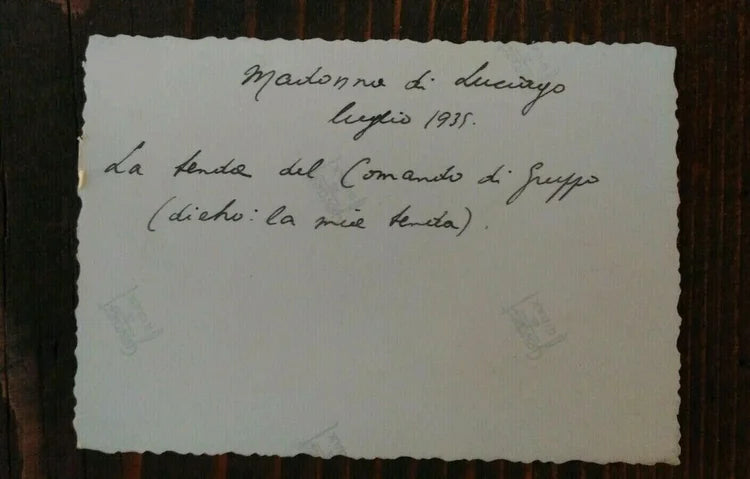 Madonna di Luciago
luglio 1935.
La tenda del Comando di Gruppo
(dietro: la mia tenda).